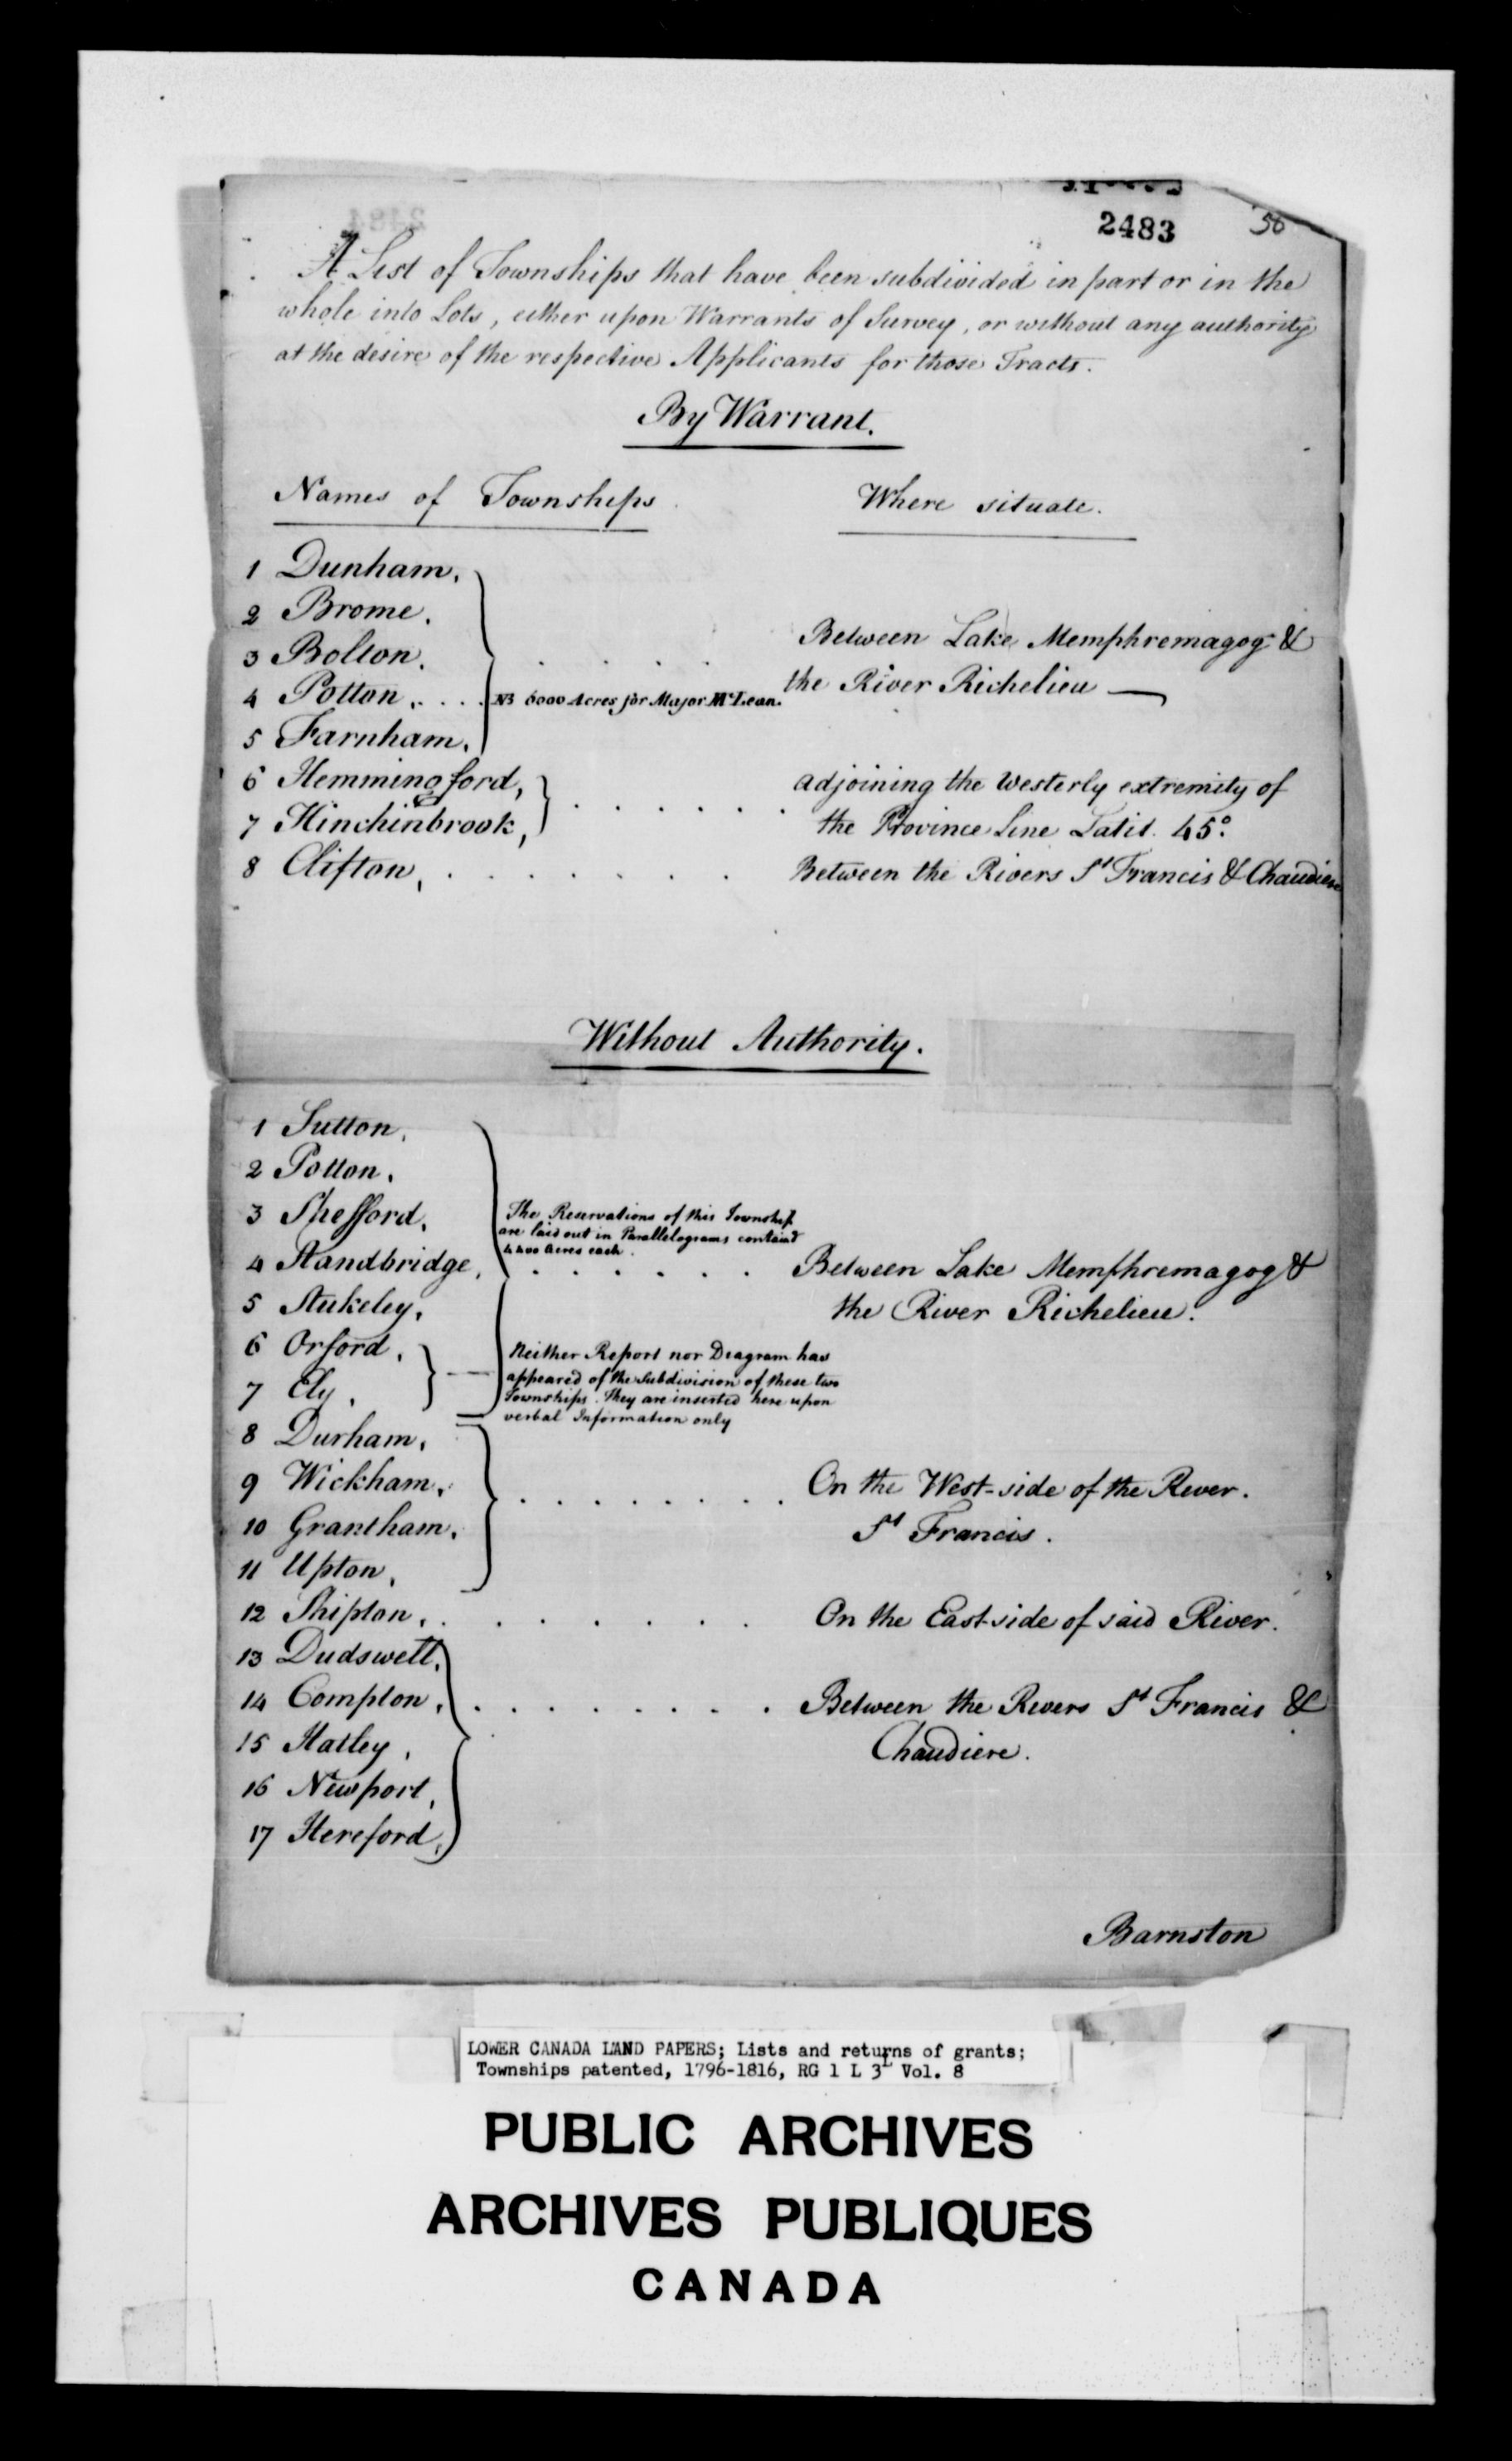 2483 58
A List of Townships that have been subdivided in part or in the
whole into Lots, either upon Warrants of Survey, or without any authority
at the desire of the respective Applicants for those Tracts.
By Warrant.
Names of Townships Where situate.
1 Dunham,
2 Brome,
3 Bolton,
Between Lake Memphremagog &
4 Potton, . . . NB 6000 Acres for Major McLean. the River Richelieu —
5 Farnham,
6 Hemmingford, adjoining the Westerly extremity of
7 Hinchinbrook, the Province Line Latit. 45°.
8 Clifton, . . . . . . . Between the Rivers St Francis & Chaudiere
Without Authority.
1 Sutton,
2 Potton,
3 Shefford, The Reservations of this Township
are laid out in Parallelograms containd
4400 Acres each.
4 Standbridge, . . . . . . Between Lake Memphremagog &
5 Stukeley, the River Richelieu.
6 Orford, Neither Report nor Diagram has
appeared of the Subdivision of these two
7 Ely, Townships. They are inserted here upon
verbal Information only
8 Durham,
9 Wickham, . . . . . . . . On the West-side of the River.
10 Grantham, St Francis.
11 Upton,
12 Shipton, . . . . . . . On the East-side of said River.
13 Dudswell,
14 Compton, . . . . . . . . Between the Rivers St Francis &
15 Hatley, Chaudiere.
16 Newport,
17 Hereford,
Barnston
LOWER CANADA LAND PAPERS; Lists and returns of grants;
Townships patented, 1796-1816, RG 1 L 3L Vol. 8
PUBLIC ARCHIVES
ARCHIVES PUBLIQUES
CANADA